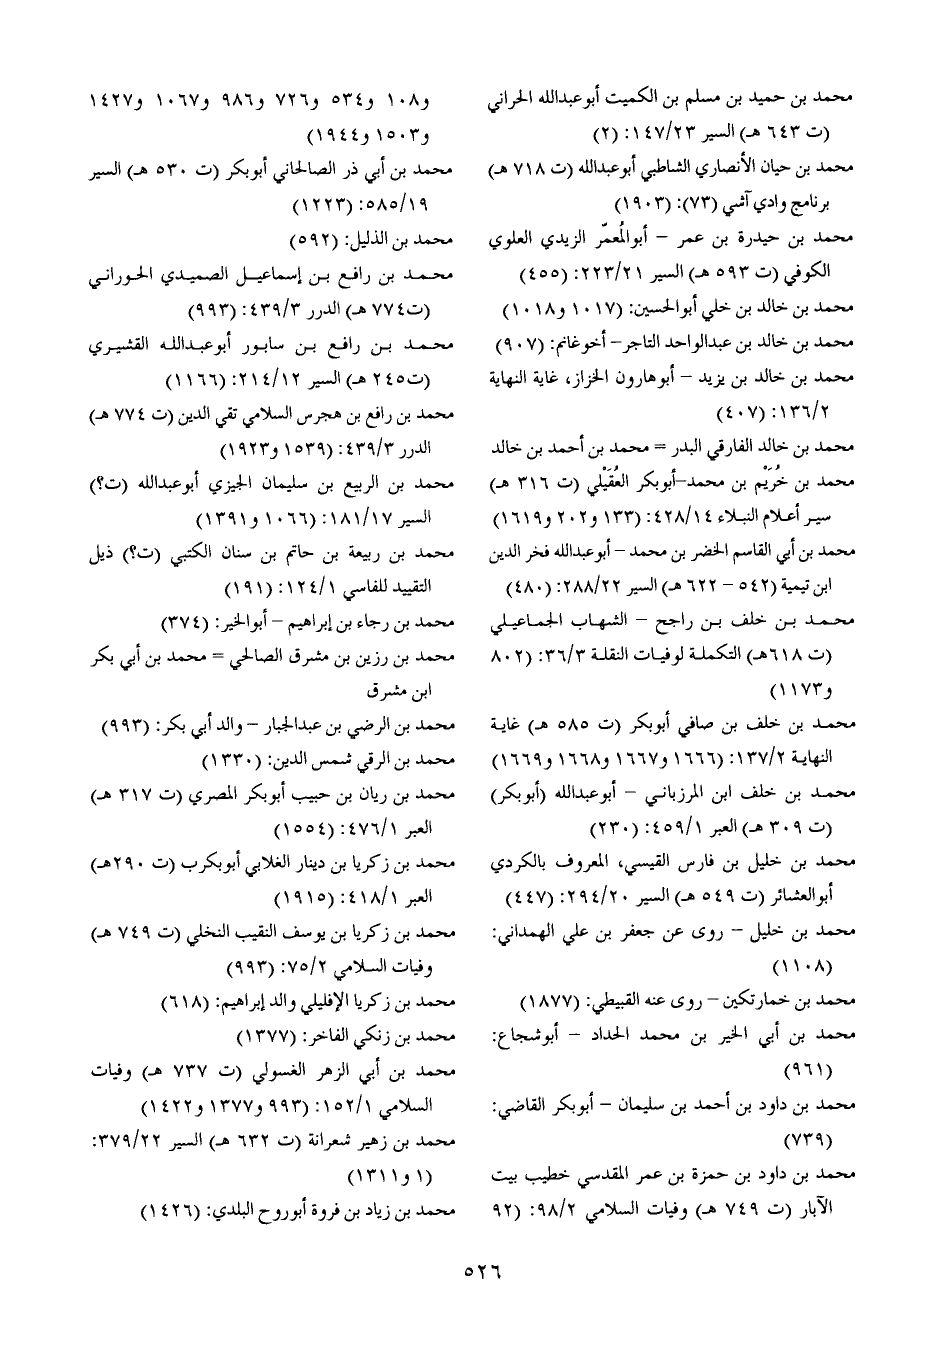 محمد بن حميد بن مسلم بن الكميت أبوعبدالله الحراني
(ت ٦٤٣ هـ) السير ١٤٧/٢٣: (٢)
محمد بن حيان الأنصاري الشاطبي أبوعبدالله (ت ٧١٨ هـ)
برنامج وادي آشي (٧٣): (١٩٠٣)
محمد بن حيدرة بن عمر – أبوالمُعمّر الزيدي العلوي
الكوفي (ت ٥٩٣ هـ) السير ٢٢٣/٢١: (٤٥٥)
محمد بن خالد بن خلي أبوالحسين: (١٠١٧ و١٠١٨)
محمد بن خالد بن عبدالواحد التاجر– أخوغانم: (٩٠٧)
محمد بن خالد بن يزيد – أبوهارون الخزاز، غاية النهاية
١٣٦/٢: (٤٠٧)
محمد بن خالد الفارقي البدر = محمد بن أحمد بن خالد
محمد بن خُرَيْم بن محمد–أبوبكر العُقَيْلي (ت ٣١٦ هـ)
سير أعلام النبلاء ٤٢٨/١٤: (١٣٣ و٢٠٢ و١٦١٩)
محمد بن أبي القاسم الخضر بن محمد – أبوعبدالله فخر الدين
ابن تيمية (٥٤٢ – ٦٢٢ هـ) السير ٢٨٨/٢٢: (٤٨٠)
محمد بن خلف بن راجح – الشهاب الجماعيلي
(ت ٦١٨هـ) التكملة لوفيات النقلة ٣٦/٣: (٨٠٢
و١١٧٣)
محمد بن خلف بن صافي أبوبكر (ت ٥٨٥ هـ) غاية
النهاية ١٣٧/٢: (١٦٦٦ و١٦٦٧ و١٦٦٨ و١٦٦٩)
محمد بن خلف ابن المرزباني – أبوعبدالله (أبوبكر)
(ت ٣٠٩ هـ) العبر ٤٥٩/١: (٢٣٠)
محمد بن خليل بن فارس القيسي، المعروف بالكردي
أبوالعشائر (ت ٥٤٩ هـ) السير ٢٩٤/٢٠: (٤٤٧)
محمد بن خليل – روى عن جعفر بن علي الهمداني:
(١١٠٨)
محمد بن خمارتكين – روى عنه القبيطي: (١٨٧٧)
محمد بن أبي الخير بن محمد الحداد – أبوشجاع:
(٩٦١)
محمد بن داود بن أحمد بن سليمان – أبوبكر القاضي:
(٧٣٩)
محمد بن داود بن حمزة بن عمر المقدسي خطيب بيت
الآبار (ت ٧٤٩ هـ) وفيات السلامي ٩٨/٢: (٩٢
و١٠٨ و٥٣٤ و٧٢٦ و٩٨٦ و١٠٦٧ و١٤٢٧
و١٥٠٣ و١٩٤٤)
محمد بن أبي ذر الصالحاني أبوبكر (ت ٥٣٠ هـ) السير
٥٨٥/١٩: (١٢٢٣)
محمد بن الذليل: (٥٩٢)
محمد بن رافع بن إسماعيل الصميدي الحوراني
(ت٧٧٤ هـ) الدرر ٤٣٩/٣: (٩٩٣)
محمد بن رافع بن سابور أبوعبدالله القشيري
(ت٢٤٥ هـ) السير ٢١٤/١٢: (١١٦٦)
محمد بن رافع بن هجرس السلامي تقي الدين (ت ٧٧٤ هـ)
الدرر ٤٣٩/٣: (١٥٣٩ و١٩٢٣)
محمد بن الربيع بن سليمان الجيزي أبوعبدالله (ت؟)
السير ١٨١/١٧: (١٠٦٦ و١٣٩١)
محمد بن ربيعة بن حاتم بن سنان الكتبي (ت؟) ذيل
التقييد للفاسي ١٢٤/١: (١٩١)
محمد بن رجاء بن إبراهيم – أبوالخير: (٣٧٤)
محمد بن رزين بن مشرق الصالحي = محمد بن أبي بكر
ابن مشرق
محمد بن الرضي بن عبدالجبار – والد أبي بكر: (٩٩٣)
محمد بن الرقي شمس الدين: (١٣٣٠)
محمد بن ريان بن حبيب أبوبكر المصري (ت ٣١٧ هـ)
العبر ٤٧٦/١: (١٥٥٤)
محمد بن زكريا بن دينار الغلابي أبوبكرب (ت ٢٩٠هـ)
العبر ٤١٨/١: (١٩١٥)
محمد بن زكريا بن يوسف النقيب النخلي (ت ٧٤٩ هـ)
وفيات السلامي ٧٥/٢: (٩٩٣)
محمد بن زكريا الإفليلي والد إبراهيم: (٦١٨)
محمد بن زنكي الفاخر: (١٣٧٧)
محمد بن أبي الزهر الغسولي (ت ٧٣٧ هـ) وفيات
السلامي ١٥٢/١: (٩٩٣ و١٣٧٧ و١٤٢٢)
محمد بن زهير شعرانة (ت ٦٣٢ هـ) السير ٣٧٩/٢٢:
(١ و١٣١١)
محمد بن زياد بن فروة أبوروح البلدي: (١٤٢٦)
٥٢٦